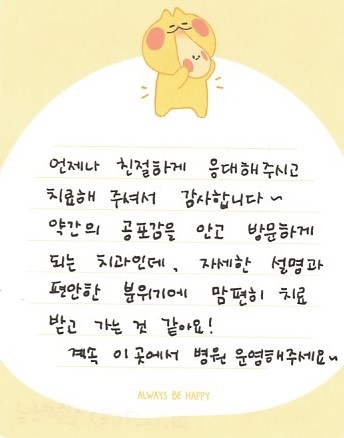 언제나 친절하게 응대해주시고
치료해 주셔서 감사합니다~
약간의 공포감을 안고 방문하게
되는 치과인데, 자세한 설명과
편안한 분위기에 맘편히 치료
받고 가는 것 같아요!
계속 이 곳에서 병원 운영해주세요~
ALWAYS BE HAPPY